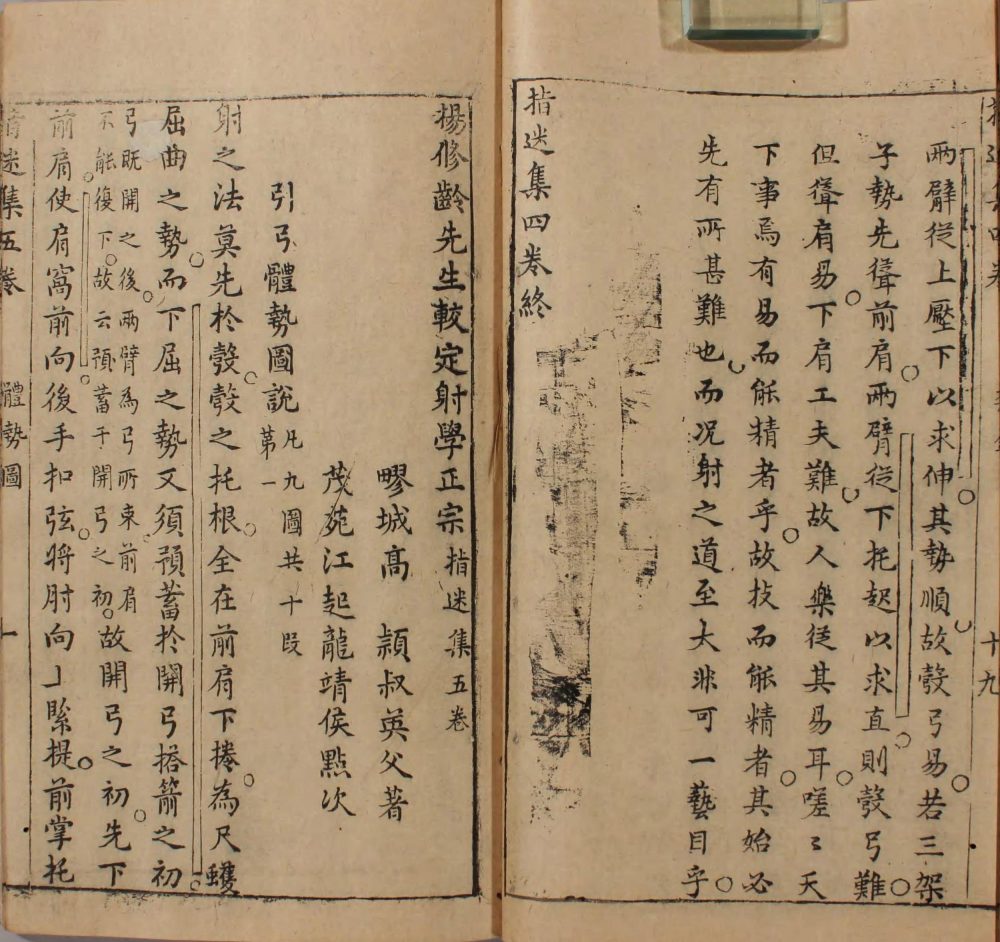 兩臂從上壓下以求伸其勢順故彀弓易若三架
子勢先聳前肩兩臂從下托起以求直則彀弓難
但聳肩易下肩工夫難故人樂從其易耳嗟〻天
下事焉有易而能精者乎故技而能精者其始必
先有所甚難也而况射之道至大非可一藝目乎
指迷集四卷終
十九
楊修齡先生較定射學正宗指迷集五卷
嘐城高 頴叔英父著
茂苑江起龍靖侯點次
引弓體勢圖說凡九圖共十段
第一
射之法莫先於彀彀之托根全在前肩下捲為尺蠖
屈曲之勢而下屈之勢又須預蓄於開弓搭箭之初
弓既開之後兩臂為弓所束前肩
不能復下故云預蓄于開弓之初
故開弓之初先下
前肩使肩窩前向後手扣弦將肘向上緊提前掌托
指迷集五卷 體勢圖 一